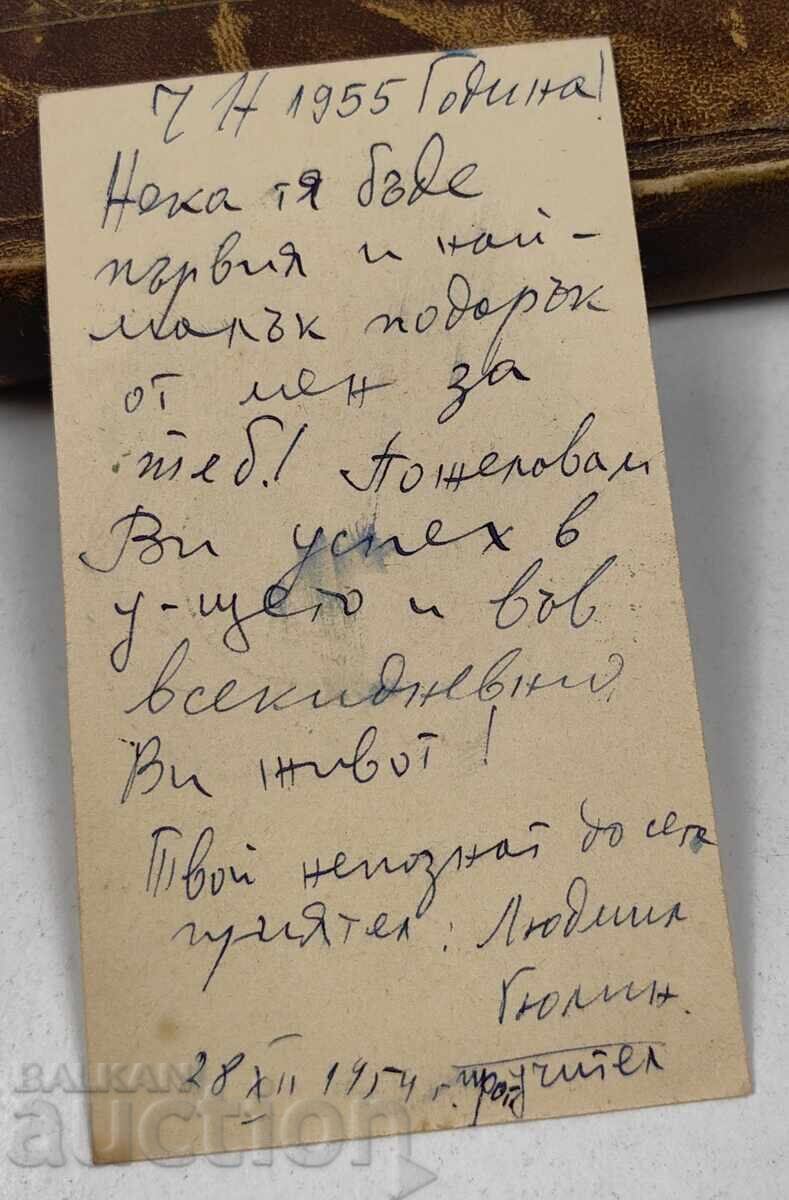 ЧН 1955 Година!
Нека тя бъде
първия и най-
малък подарък
от мен за
теб! Пожелавам
Ви успех в
у-щето и във
всекидневно
Ви живот!
Твой непознат до сега
приятел: Людмил
Гюлин.
28 XII 1954 г. учител
BALKAN
auction